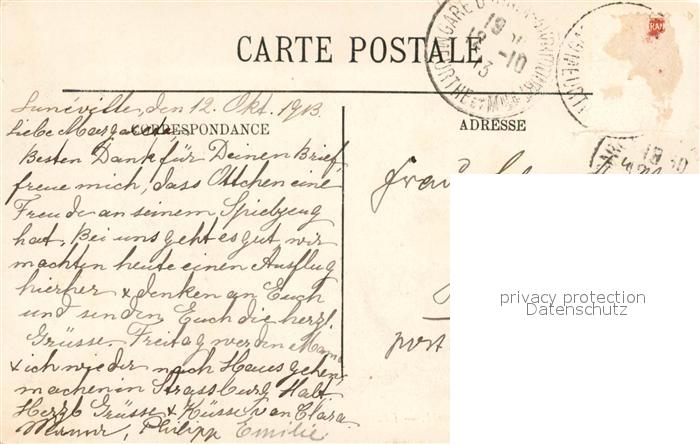 CARTE POSTALE
CORRESPONDANCE
ADRESSE
Lunéville, den 12. Okt. 1913.
Liebe Margaret,
Besten Dank für Deinen Brief,
freue mich, dass Ottchen eine
Freude an seinem Spielzeug
hat. Bei uns geht es gut, wir
machten heute einen Ausflug
hierher & denken an Euch
und senden Euch die herzl.
Grüsse. Freitag werden Mama
& ich wieder nach Haus gehen,
machen in Strassburg Halt.
Herzl Grüsse & Küsse von Clara
Mama, Philipp Emilie
Frau
post
privacy protection
Datenschutz